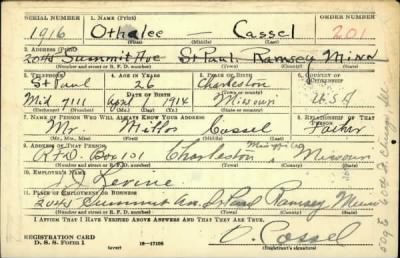 SERIAL NUMBER 1. NAME (Print) ORDER NUMBER
1916 Othalee — Cassel 201
(First) (Middle) (Last)
2. ADDRESS (Print)
2044 Summit Ave St Paul Ramsey Minn
(Number and street or R. F. D. number) (Town) (County) (State)
3. TELEPHONE 4. AGE IN YEARS 5. PLACE OF BIRTH 6. COUNTRY OF CITIZENSHIP
St Paul 26 Charleston
DATE OF BIRTH
Mid 7111 April 1914 Missouri U.S.A
(Exchange) (Number) (Mo.) (Day) (Yr.) (State or country)
7. NAME OF PERSON WHO WILL ALWAYS KNOW YOUR ADDRESS 8. RELATIONSHIP OF THAT PERSON
Mr. Cassel Father
(Mr., Mrs., Miss) (First) (Middle) (Last)
9. ADDRESS OF THAT PERSON
R.F.D. Box 101 Charleston Mississippi Missouri
(Number and street or R. F. D. number) (Town) (County) (State)
10. EMPLOYER'S NAME
Levine
11. PLACE OF EMPLOYMENT OR BUSINESS
2044 Summit Av. St Paul Ramsey Minn
(Number and street or R. F. D. number) (Town) (County) (State)
I AFFIRM THAT I HAVE VERIFIED ABOVE ANSWERS AND THAT THEY ARE TRUE.
REGISTRATION CARD
D. S. S. Form 1 (over) 16—17105 O. Cassel
(Registrant's signature)